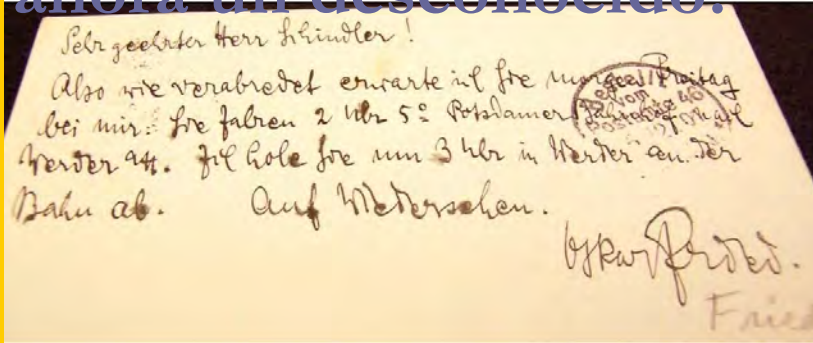 ahora un desconocido.
Sehr geehrter Herr Schindler!
Also wie verabredet erwarte ich Sie morgen Freitag
bei mir. Sie fahren 2 Uhr 5º Potsdamer Bahnhof nach
Werder ab. Ich hole Sie um 3 Uhr in Werder an der
Bahn ab. Auf Wiedersehen.
Oskar Fried.
Fried